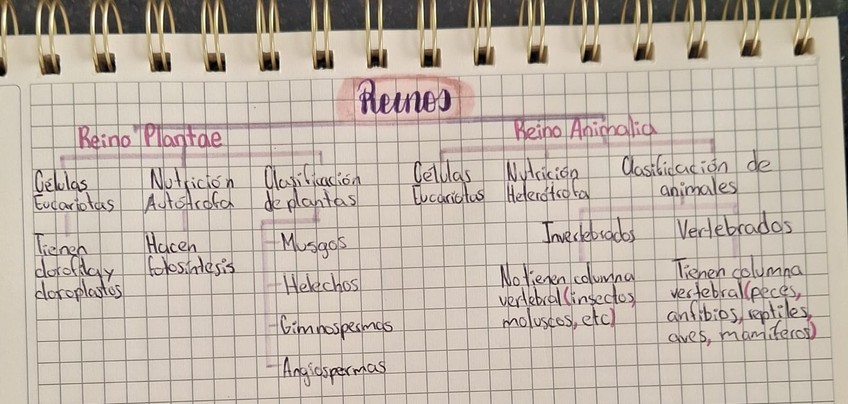 Reinos
Reino Plantae
Reino Animalia
Células
Eucariotas
Tienen
clorofila y
cloroplastos
Nutrición
Autótrofa
Hacen
fotosíntesis
Clasificación
de plantas
- Musgos
- Helechos
- Gimnospermas
- Angiospermas
Células
Eucariotas
Nutrición
Heterótrofa
Clasificación de
animales
Invertebrados
No tienen columna
vertebral (insectos,
moluscos, etc)
Vertebrados
Tienen columna
vertebral (peces,
anfibios, reptiles,
aves, mamíferos)